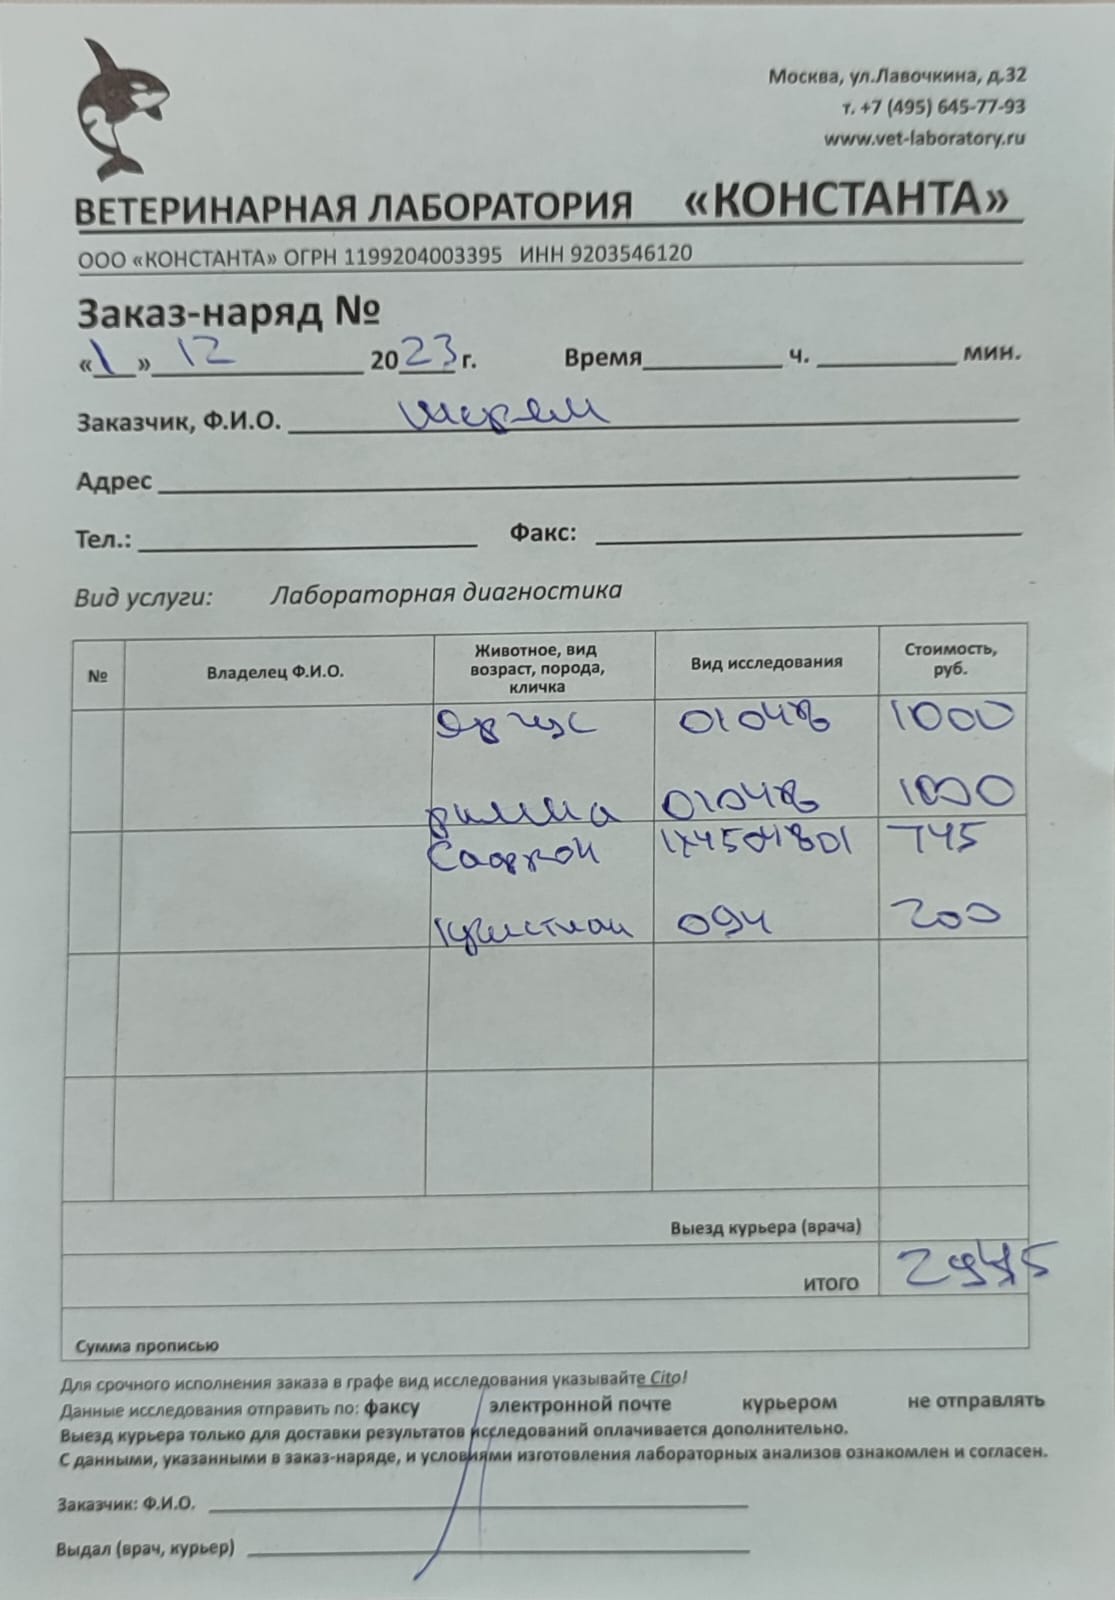 Москва, ул.Лавочкина, д.32
т. +7 (495) 645-77-93
www.vet-laboratory.ru
ВЕТЕРИНАРНАЯ ЛАБОРАТОРИЯ «КОНСТАНТА»
ООО «КОНСТАНТА» ОГРН 1199204003395 ИНН 9203546120
Заказ-наряд №
«1» 12 2023 г. Время ч. мин.
Заказчик, Ф.И.О.
Адрес
Тел.: Факс:
Вид услуги: Лабораторная диагностика
№ Владелец Ф.И.О. Животное, вид возраст, порода, кличка Вид исследования Стоимость, руб.
Аргус 1000
Римма 1000
745
Кристиан 094 200
Выезд курьера (врача)
ИТОГО 2945
Сумма прописью
Для срочного исполнения заказа в графе вид исследования указывайте Cito!
Данные исследования отправить по: факсу электронной почте курьером не отправлять
Выезд курьера только для доставки результатов исследований оплачивается дополнительно.
С данными, указанными в заказ-наряде, и условиями изготовления лабораторных анализов ознакомлен и согласен.
Заказчик: Ф.И.О.
Выдал (врач, курьер)